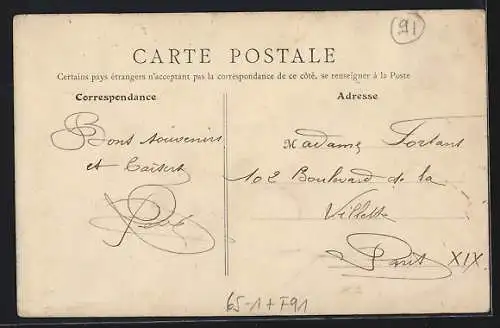 91
CARTE POSTALE
Certains pays étrangers n'acceptant pas la correspondance de ce côté, se renseigner à la Poste
Correspondance
Adresse
Bons souvenirs
et
Madame
102 Boulevard de la
Villette
Paris XIX.
65-1+F91